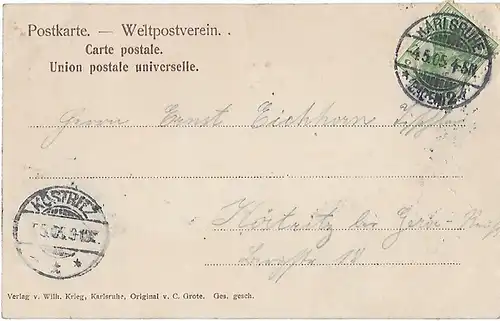 Postkarte. — Weltpostverein.
Carte postale.
Union postale universelle.
KARLSRUHE
-4.5.05.
(BADEN) 2
Herrn Ernst Eichhorn
KÖSTRITZ
Köstritz bei Gera-Reuß
18
Verlag v. Wilh. Krieg, Karlsruhe, Original v. C. Grote. Ges. gesch.